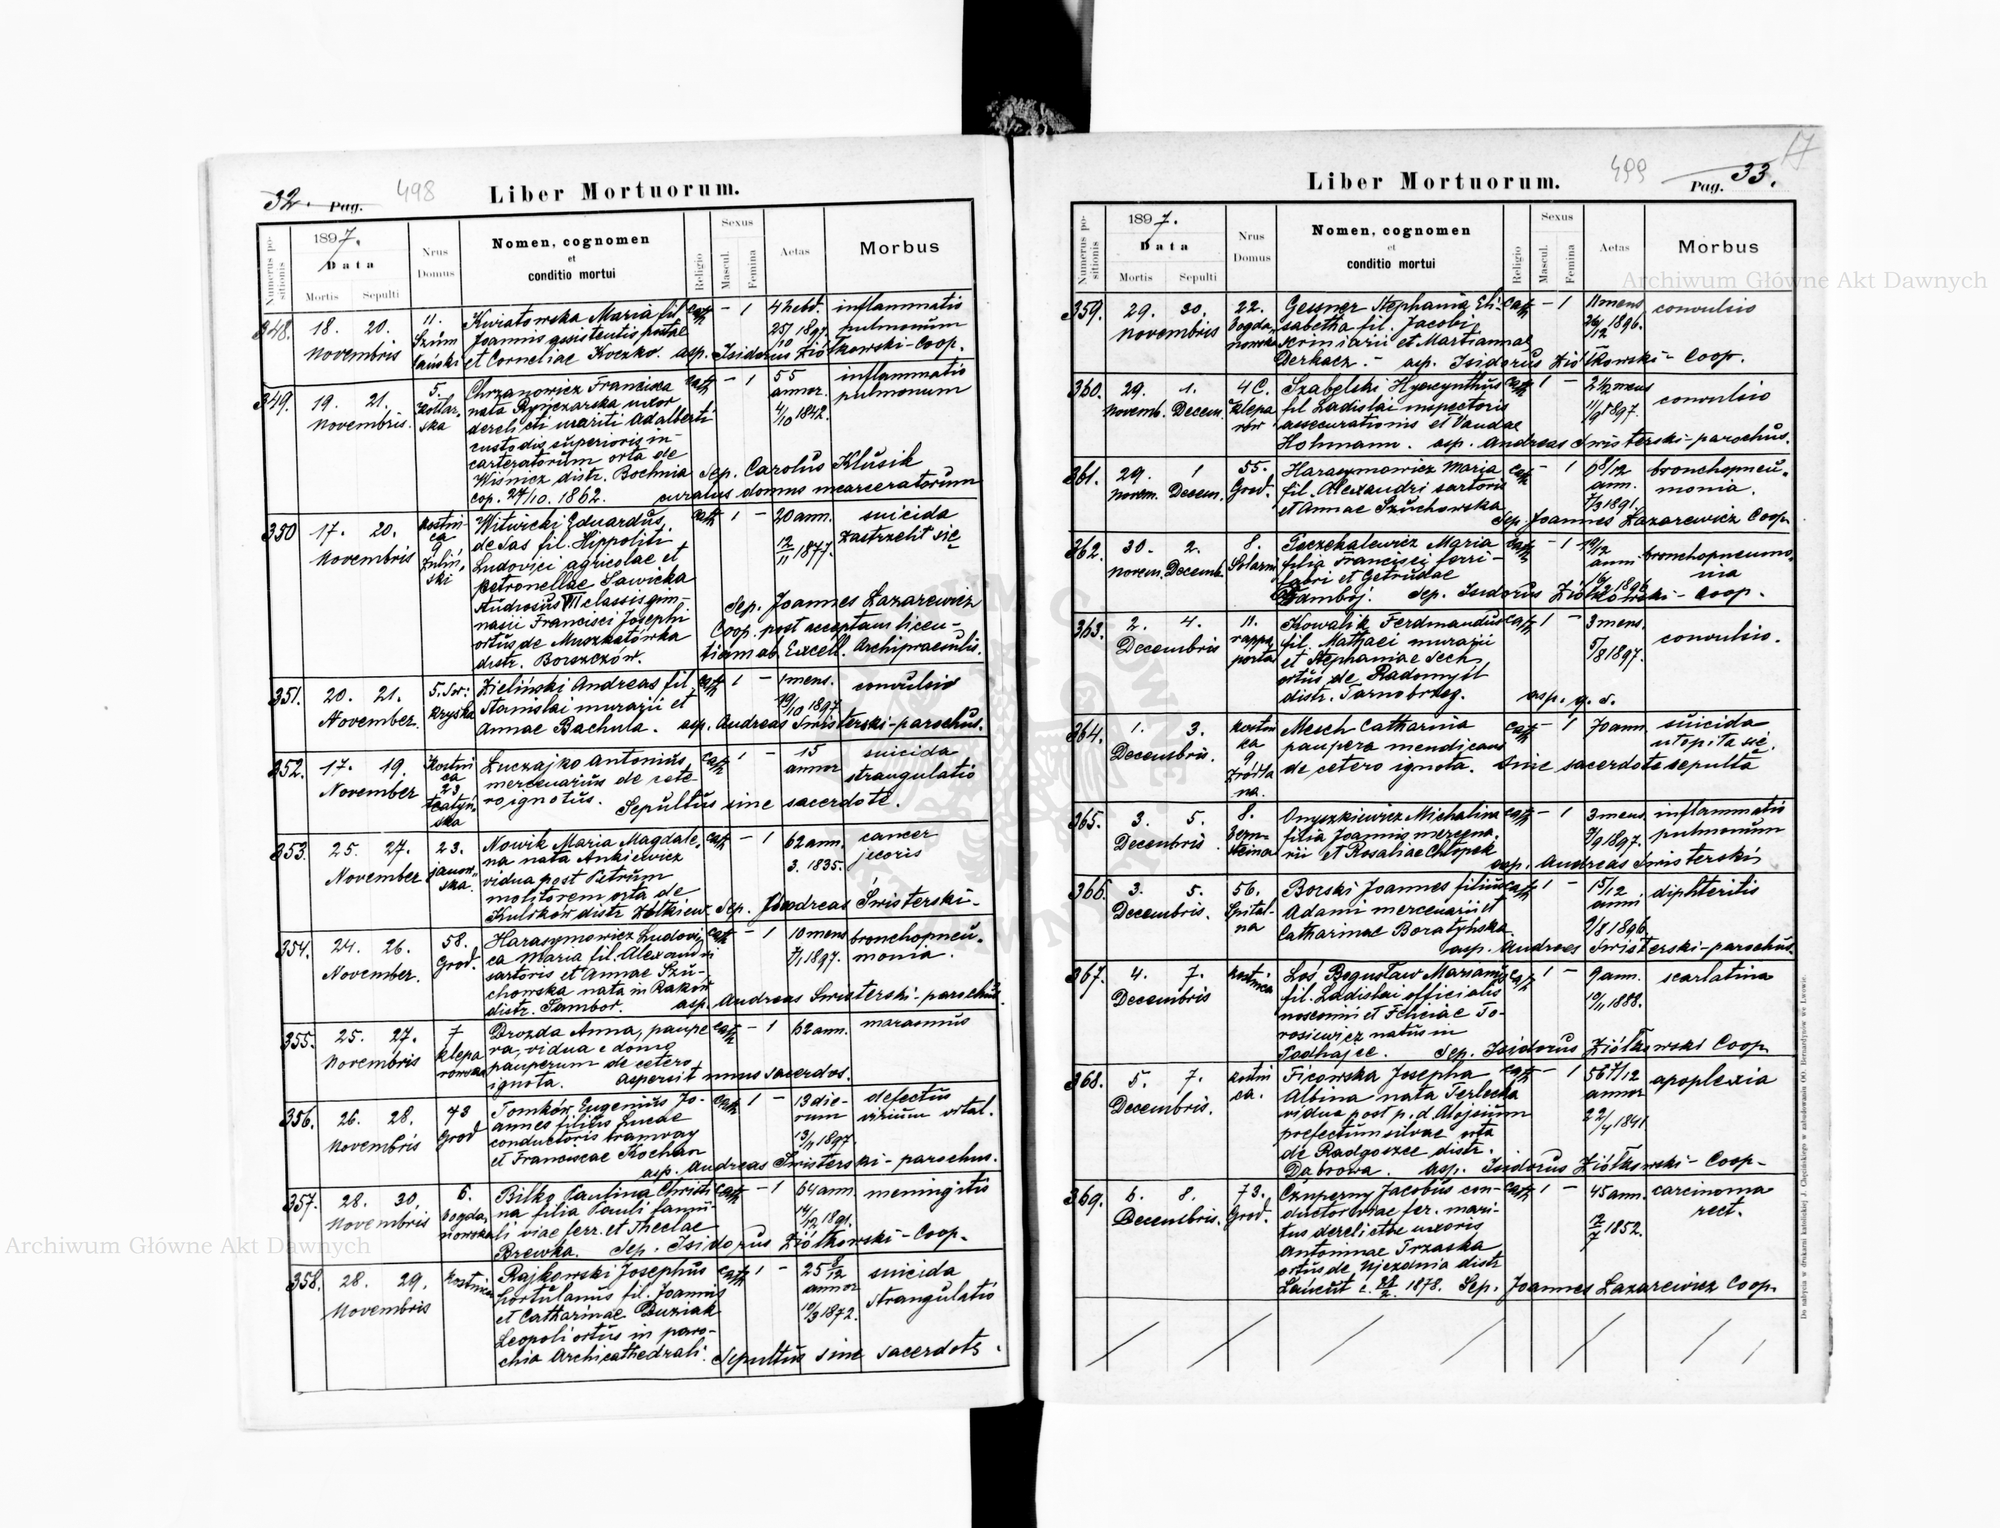 32. Pag. 498
Liber Mortuorum.
Numerus positionis
1897.
Data
Mortis Sepulti
Nrus Domus
Nomen, cognomen
et
conditio mortui
Religio
Sexus
Mascul. Femina
Aetas
Morbus
348. 18. 20. Novembris
11.
Kwiatowska Maria fil. cath – 1 inflammatio
Joannis assistentis postal 1897. pulmonum
et Corneliae Koczko. asp. Isidorus Ziółkowski – Coop.
349. 19. 21. Novembris.
5. Kotlar-
ska
Chrzanowicz Francisca cath – 1 55 inflammatio
nata Rynczarska uxor annor. pulmonum
derelicti mariti Adalberti 4/10 1842.
custodis superioris in-
carceratorum orta de
Wiśnicz distr. Bochnia Sep. Carolus Klusik
cop. 27/10. 1862. curatus domus incarceratorum
350 17. 20. Novembris
Kostni-
ca
9
Zuliń-
ski
Witwicki Eduardus cath 1 – 20 ann. suicida
de Sas fil. Hippoliti 12/11 1877. zastrzelił się
Ludovici agricolae et
Petronellae Sawicka
studiosus VII classis gim-
nasii Francisci Josephi Sep. Joannes Lazarewicz
ortus de Muszkatówka Coop. post acceptam licen-
distr. Borszczów. tiam ab Excell. Archipraesulis.
351. 20. 21. November.
Zieliński Andreas fil. cath 1 – 1 mens. convulsio
Stanislai murarii et 19/10 1897
Annae Bachula. asp. Andreas Swisterski – parochus.
352. 17. 19. November
Kostni
ca
23
Łuczajko Antonius cath 1 – 15 suicida
mercenarius de cete- annor strangulatio
ro ignotus. Sepultus sine sacerdote.
353. 25. 27. November
23.
janow-
ska.
Nowik Maria Magdale- cath – 1 62 ann. cancer
na nata Ankiewicz 3. 1835. jecoris
vidua post Petrum
molitorem orta de
Kulików distr. Żółkiew. Sep. Andreas Świsterski –
354. 24. 26. November.
58.
Grod.
Harasymowicz Ludovi- cath – 1 10 mens bronchopneu-
ca Maria fil. Alexandri 1897. monia.
sartoris et Annae Szu-
chowska nata in Raków
distr. Sambor. asp. Andreas Swisterski – parochus.
355. 25. 27. Novembris
7
klepa
rowska
Drozda Anna, paupe- cath – 1 62 ann. marasmus
ra, vidua e domo
pauperum de cetero
ignota. aspersit unus sacerdos.
356. 26. 28. Novembris
43
Grod
Tomków Eugenius Jo- cath 1 – 13 die- defectus
annes filius Lucae rum virium vital.
conductoris tramway 13/11 1897.
et Franciscae Kochan
asp. Andreas Swisterski – parochus.
357. 28. 30. Novembris
6.
bogda-
nowska
Bilko Paulina Christi- cath – 1 meningitis
na filia Pauli famu-
li viae ferr. et Theclae
Brewka. Sep. Isidorus Ziółkowski – Coop.
358. 28. 29. Novembris
Kostnica
Rajkowski Josephus cath 1 – 25 8/12 suicida
hortulanus fil. Joannis annor strangulatio
et Catharinae Buziak 19/3 1872.
Leopoli ortus in paro-
chia Archicathedrali. Sepultus sine sacerdote.
Pag. 33. 499 17
Liber Mortuorum.
Numerus positionis
1897.
Data
Mortis Sepulti
Nrus Domus
Nomen, cognomen
et
conditio mortui
Religio
Sexus
Mascul. Femina
Aetas
Morbus
359. 29. 30. Novembris
22.
bogda-
nowka
Gessner Stephania Eli- cath – 1 11 mens convulsio
sabetha fil. Jacobi 26/12 1896.
scriniarii et Martiannae
Derkacz. – asp. Isidorus Ziółkowski – Coop.
360. 29. 1. Novemb. Decem.
4 C.
klepa
rów
Szabelski Hyacynthus cath 1 – 2 1/2 mens convulsio
fil. Ladislai inspectoris 1897.
assecurationis et Vandae
Hohmann. asp. Andreas Swisterski – parochus.
361. 29. 1 Novem. Decem.
55.
Grod.
Harasymowicz Maria cath – 1 6 8/12 bronchopneu-
fil. Alexandri sartoris ann. monia.
et Annae Szuchowska 7/3 1891.
Sep. Joannes Lazarewicz Coop.
362. 30. 2. Novem. Decemb.
8.
Solarni
Paczekalewicz Maria cath – 1 bronchopneumo-
filia Francisci ferri- anni nia
fabri et Getrudae 1896
Dambój. Sep. Isidorus Ziółkowski – Coop.
363. 2. 4. Decembris
11.
rappa
porta
Kowalik Ferdinandus cath 1 – 3 mens. convulsio.
fil. Mathaei murarii 5/8 1897.
et Stephaniae Sech
ortus de Radomyśl
distr. Tarnobrzeg. asp. q. s.
364. 1. 3. Decembris.
Kostni
ca
9
Źródla
na.
Mesch Catharina cath – 1 70 ann. suicida
paupera mendicans utopiła się.
de cetero ignota. sine sacerdote sepulta
365. 3. 5. Decembris
8.
Bern-
steina
Onyszkiewicz Michalina cath – 1 3 mens. inflammatio
filia Joannis mercena- 1897. pulmonum
rii et Rosaliae Chłopek
asp. Andreas Swisterski
366. 3. 5. Decembris.
56.
Spital-
na
Borski Joannes filius cath 1 – 15/12 diphteritis
Adami mercenarii et anni
Catharinae Boratyńska. 1896
asp. Andreas Swisterski – parochus.
367. 4. 7. Decembris
Kostnica
Łoś Bogusław Marianus cath 1 – 9 ann. scarlatina
fil. Ladislai officialis 19/11 1888.
nosocomii et Feliciae To-
rosiewicz natus in
Podhajce. Sep. Isidorus Ziółkowski Coop
368. 5. 7. Decembris.
Kostni
ca.
Ficowska Josepha cath – 1 56 7/12 apoplexia
Albina nata Terlecka annor
vidua post p. d. Alojsium 22/4 1841
prefectum silvae orta
de Radgoszcz distr.
Dabrowa. asp. Isidorus Ziółkowski – Coop –
369. 6. 8. Decembris.
73.
Grod.
Czuperny Jacobus con- cath 1 – 45 ann. carcinoma
ductor viae fer. mari- 12/7 1852. rect.
tus derelictae uxoris
Antoninae Trzaska
ortus de Ujezdnia distr
Łańcut c. 24/2. 1878. Sep. Joannes Lazarewicz Coop.
Do nabycia w drukarni katolickiej J. Chęcińskiego w zabudowaniu OO. Bernardynów we Lwowie.
Archiwum Główne Akt Dawnych
Archiwum Główne Akt Dawnych